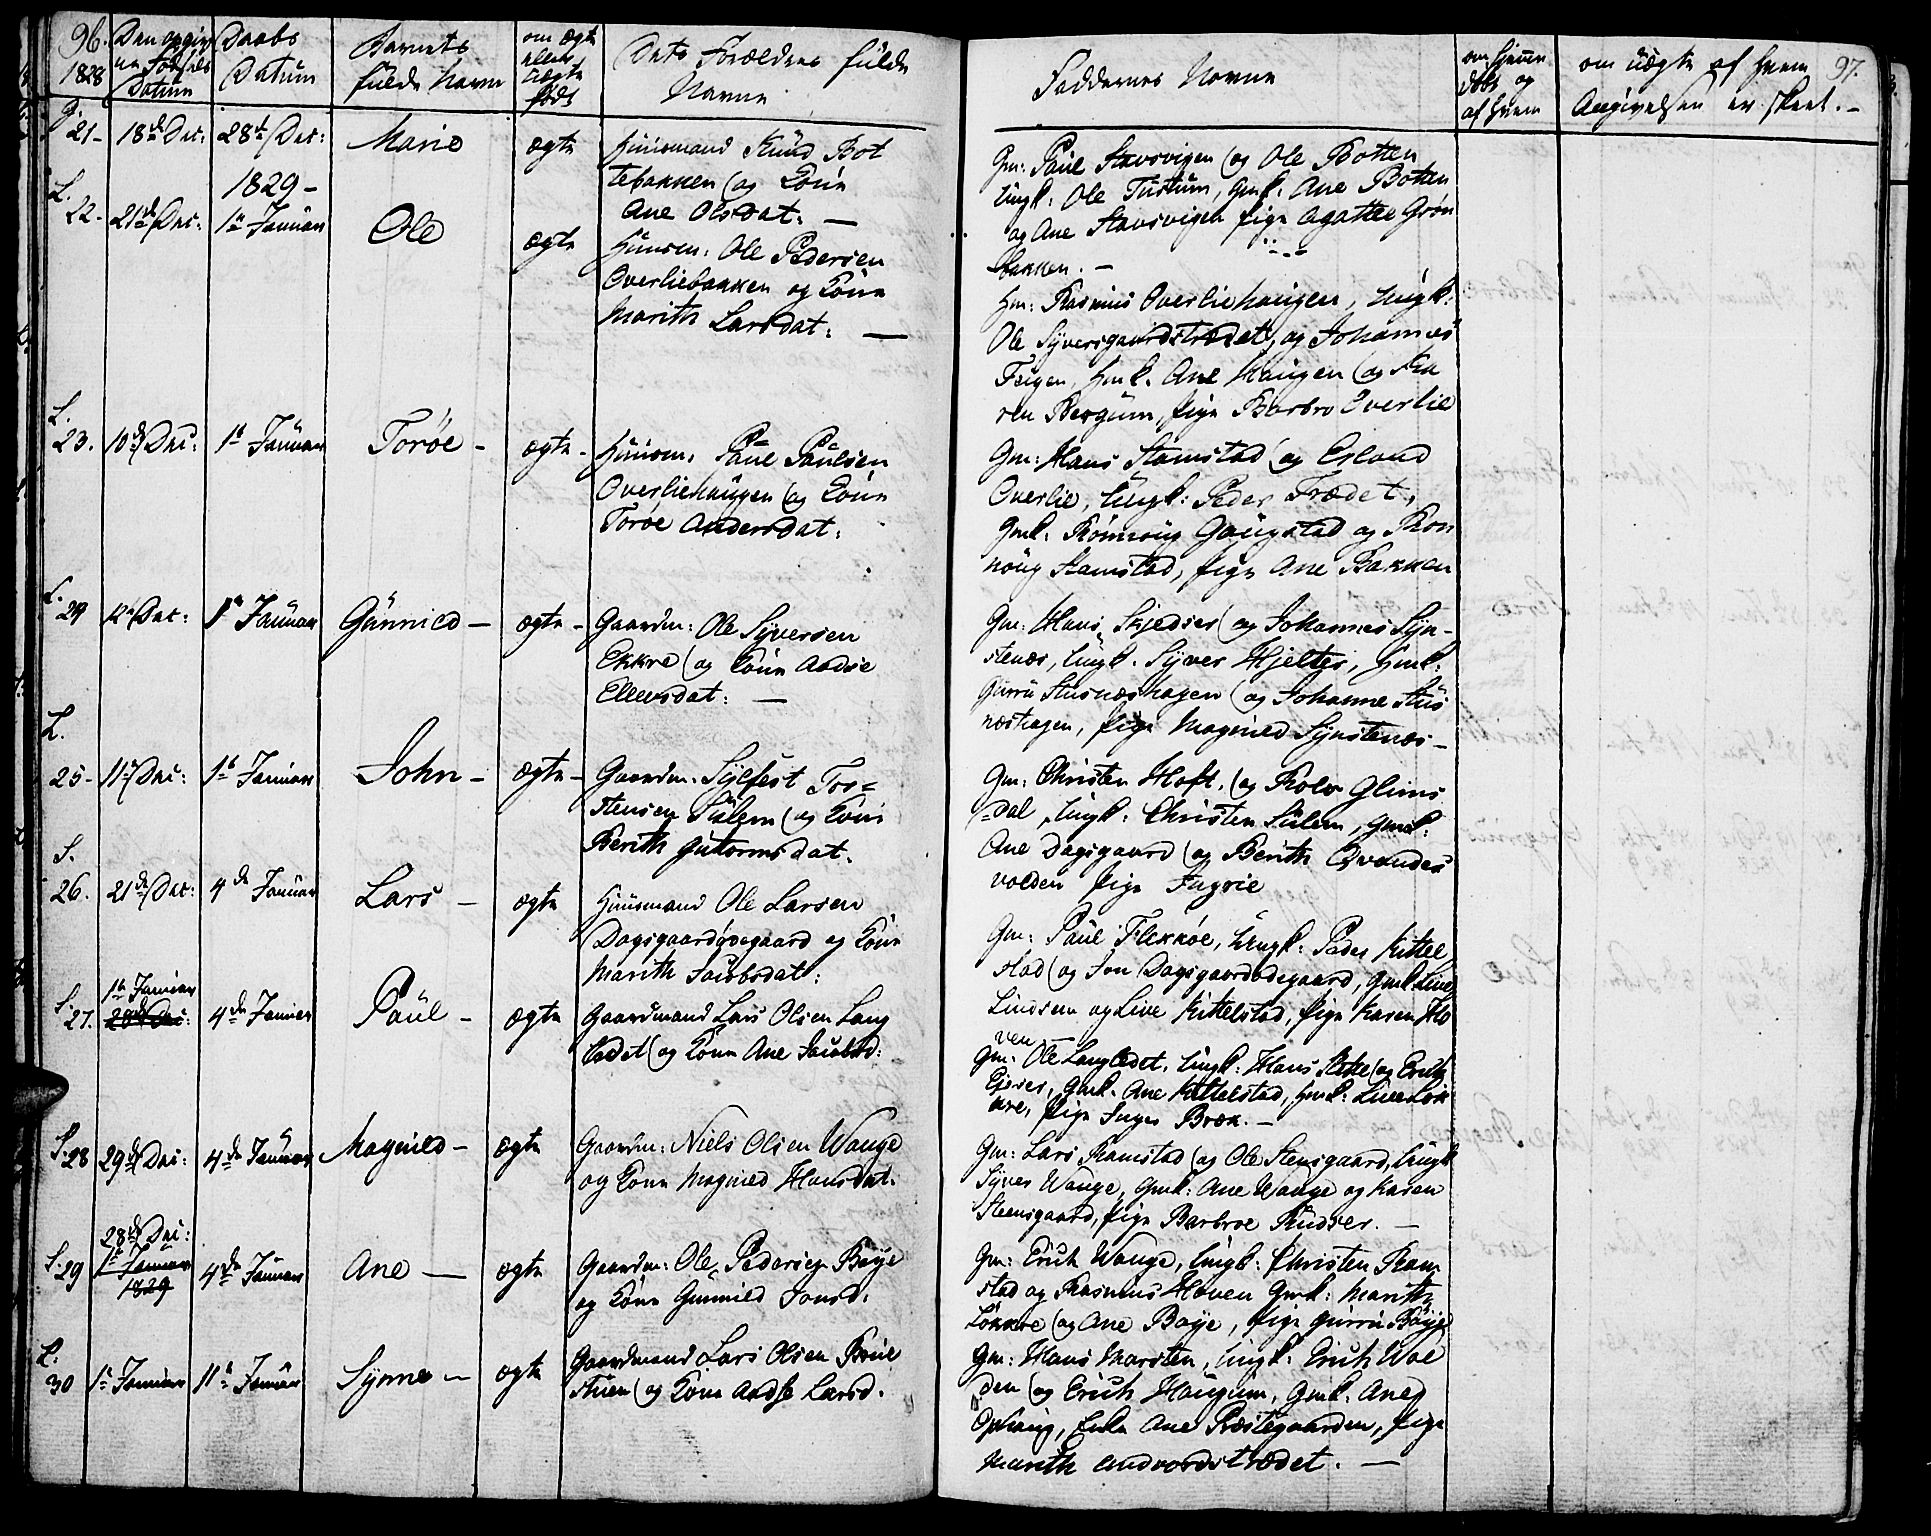 96. Den angiv Daabs Barnets om ægte Dets Forældres fulde
1828 ne Fødsels Datum fulde Navn eller uægte Navne
Datum født
Faddernes Navne om hjemme døbt og af hvem om uægte af hvem 97.
Angivelsen er skeet. -
G. 21- 18de Dec: 28de Dec: Marie ægte Huusmand Knud Bot
tebakken og Kone
Ane Olsdat: -
Gm: Paul Stavsvigen og Ole Botten
Ungk: Ole Tustum, Gmk: Ane Botten
og Ane Stavsvigen pige Agathe Grøn
bakken. -
1829-
L. 22- 21de Dec: 1te Januar Ole ægte Huusm: Ole Pedersen
Overliebakken og Kone
Marith Larsdat: -
Hm: Rasmus Overliehaugen, Ungk:
Ole Syversgaardstrædet, og Johannes
Teigen, Hmk. Ane Haugen og Ka
ren Bergum, pige Barbro Overlie
L. 23. 10de Dec: 1te Januar Torøe - ægte - Huusm: Paul Paulsen
Overliehaugen og Kone
Torøe Andersdat:
Gm: Hans Stamstad og Erland
Overlie, Ungk: Peder Trædet,
Gmk: Rønnoug Gaugstad og Ron
noug Stamstad, pige Ane Bakken
L. 24 12te Dec: 1te Januar Gunnild - ægte - Gaardm: Ole Syversen
Ekkre og Kone Andse
Ellevsdat: -
Gm: Hans Skjedser og Johannes Syn-
stenæs, Ungk. Syver Hjelter, Hmk:
Gurru Stusnæshagen og Johanne Stus
næshagen, pige Magnild Synstenæs -
L. 25- 11te Dec: 1te Januar John - ægte - Gaardm: Sylfest Tor=
stensen Sulem og Kone
Berith Guttormsdat.
Gm: Christen Hoft. og Kolv Glims
=dal, Ungk: Christen Sulem, Gmk:
Ane Dagsgaard og Berith Qvandes
volden pige Ingrie
S. 26. 21de Dec: 4de Januar Lars - ægte Huusmand Ole Larsen
Dagsgaardødegaard og Kone
Marith Jacobsdat:
Gm: Paul Flekkøe, Ungk: Peder Kittel
stad og Jon Dagsgaardødegaard, Gmk Live
Lindsen og Live Kittelstad, pige Karen Ho
ven -
S. 27. 1te Januar 28de Dec: 4de Januar Paul - ægte Gaardmand Lars Olsen Lang
ledet og Kone Ane Jacobsd:
Gm: Ole Langledet, Ungk: Hans Slette og Erich
Gjerser, Gmk: Ane Kittelstad, Hmk: Live Løk
kre, pige Inger Bræk. -
S. 28 29de Dec: 4de Januar Magnild - ægte Gaardm: Niels Olsen Wange
og Kone Magnild Hansdat.
Gm: Lars Ramstad og Ole Stensgaard, Ungk
Syver Wange, Gmk: Ane Wange og Karen
Steensgaard, pige Barbroe Rudser. -
S. 29 28de Dec: 1te Januar 1829 4de Januar Ane - ægte Gaardm: Ole Pedersen Bøye
og Kone Gunnild Jonsd.
Gm: Erich Wange, Ungk: Christen Ram
stad og Rasmus Hoven Gmk: Marith
Løkkre og Ane Bøye, pige Gurru Bøye
L. 30 1te Januar 11te Januar Synne - ægte Gaardmand Lars Olsen Brue
stuen og Kone Andse Larsd.
Gm: Hans Marsten, Ungk: Erich Wol
den og Erich Haugum, Gmk. Ane
Ophaug, Enke Ane Præstegaarden, pige
Marith Andvordstrædet. -